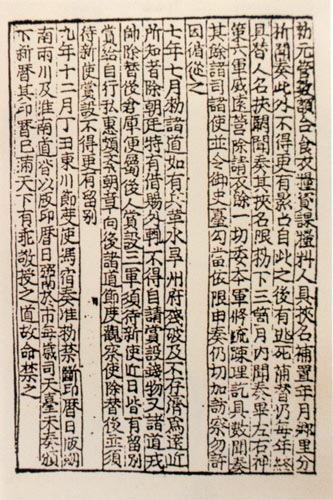 勑元管數額合食衣糧資課糧料人具挾名補置年月鄉里分
析聞奏此外不得更有影占自此之後有逃死補替仍每年終
具替人名挾關聞奏其挾名限勑下三箇月内聞奏畢左右神
策六軍威遠營除請衣餘一切委本軍將統疎理訖具數聞奏
其餘諸司諸使並令御史臺勾當依限申奏仍切加訪察勿許
因循從之
七年七月勑諸道如有兵革水旱州府殘破及不存濟爲遠近
所知者除朝廷特有借賜外輒不得自請賞設錢物又諸道戎
帥除替後倉庫便屬後人賞設三軍須待新使近日皆有留别
賞給自行私惠頗紊朝章向後諸道節度觀察使除替後並須
待新使賞設不得更有留别
九年十二月丁丑東川節度使馮宿奏准勑禁斷印曆日版劒
南兩川及淮南道皆以版印曆日鬻於市每歲司天臺未奏頒
下新曆其印曆已滿天下有乖敬授之道故命禁之